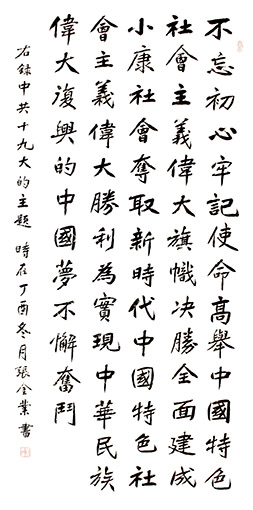 不忘初心牢記使命高舉中國特色
社會主義偉大旗幟决勝全面建成
小康社會奪取新時代中國特色社
會主義偉大勝利為實現中華民族
偉大復興的中國夢不懈奮鬥
右録中共十九大的主題 時在丁酉冬月張全業書